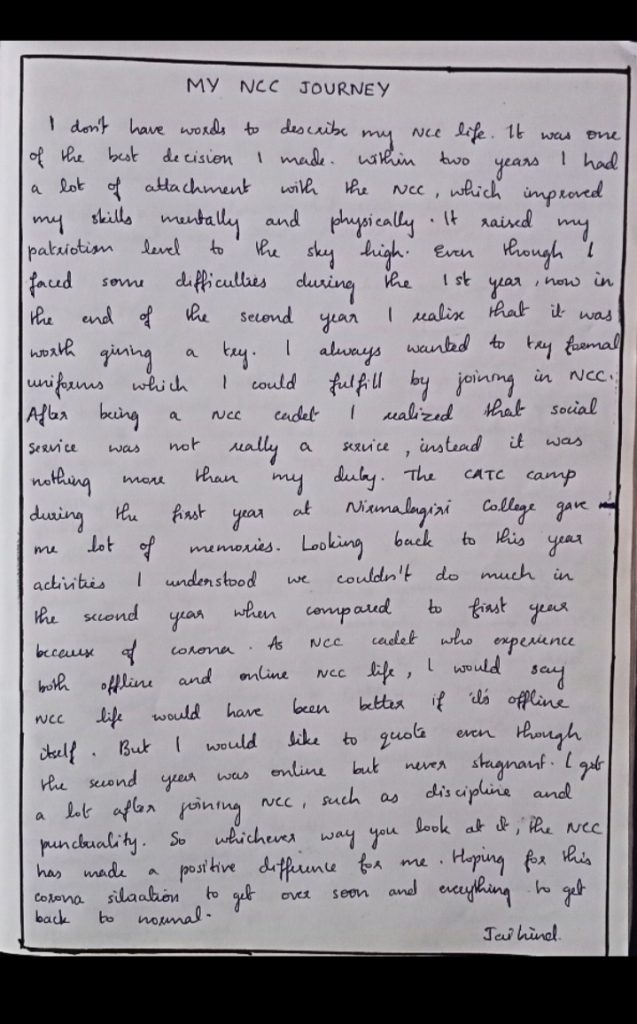 MY NCC JOURNEY
I don't have words to describe my NCC life. It was one
of the best decision I made. Within two years I had
a lot of attachment with the NCC, which improved
my skills mentally and physically. It raised my
patriotism level to the sky high. Even though I
faced some difficulties during the 1st year, now in
the end of the second year I realise that it was
worth giving a try. I always wanted to try formal
uniforms which I could fulfill by joining in NCC.
After being a NCC cadet I realized that social
service was not really a service, instead it was
nothing more than my duty. The CATC camp
during the first year at Nirmalagiri College gave
me lot of memories. Looking back to this year
activities I understood we couldn't do much in
the second year when compared to first year
because of corona. As NCC cadet who experience
both offline and online NCC life, I would say
NCC life would have been better if it's offline
itself. But I would like to quote even though
the second year was online but never stagnant. I get
a lot after joining NCC, such as discipline and
punctuality. So whichever way you look at it, the NCC
has made a positive difference for me. Hoping for this
corona situation to get over soon and everything to get
back to normal.
Jai hind.